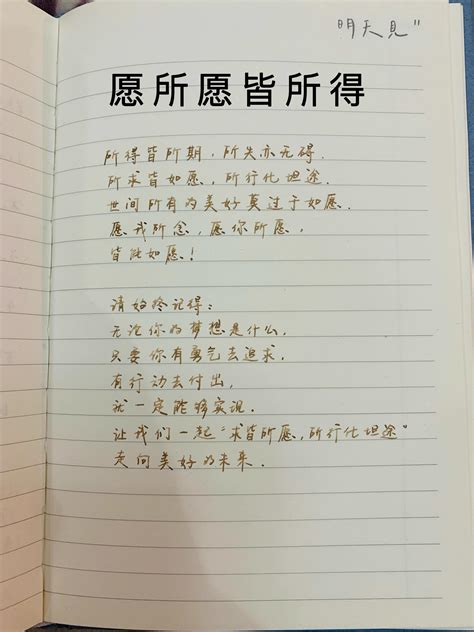 明天見"
愿所愿皆所得
所得皆所期，所失亦无碍.
所求皆如愿，所行化坦途.
世间所有的美好莫过于如愿.
愿我所念，愿你所愿，
皆能如愿！
请始终记得：
无论你的梦想是什么，
只要你有勇气去追求，
有行动去付出，
就一定能够实现.
让我们一起"求皆所愿，所行化坦途"
走向美好的未来.